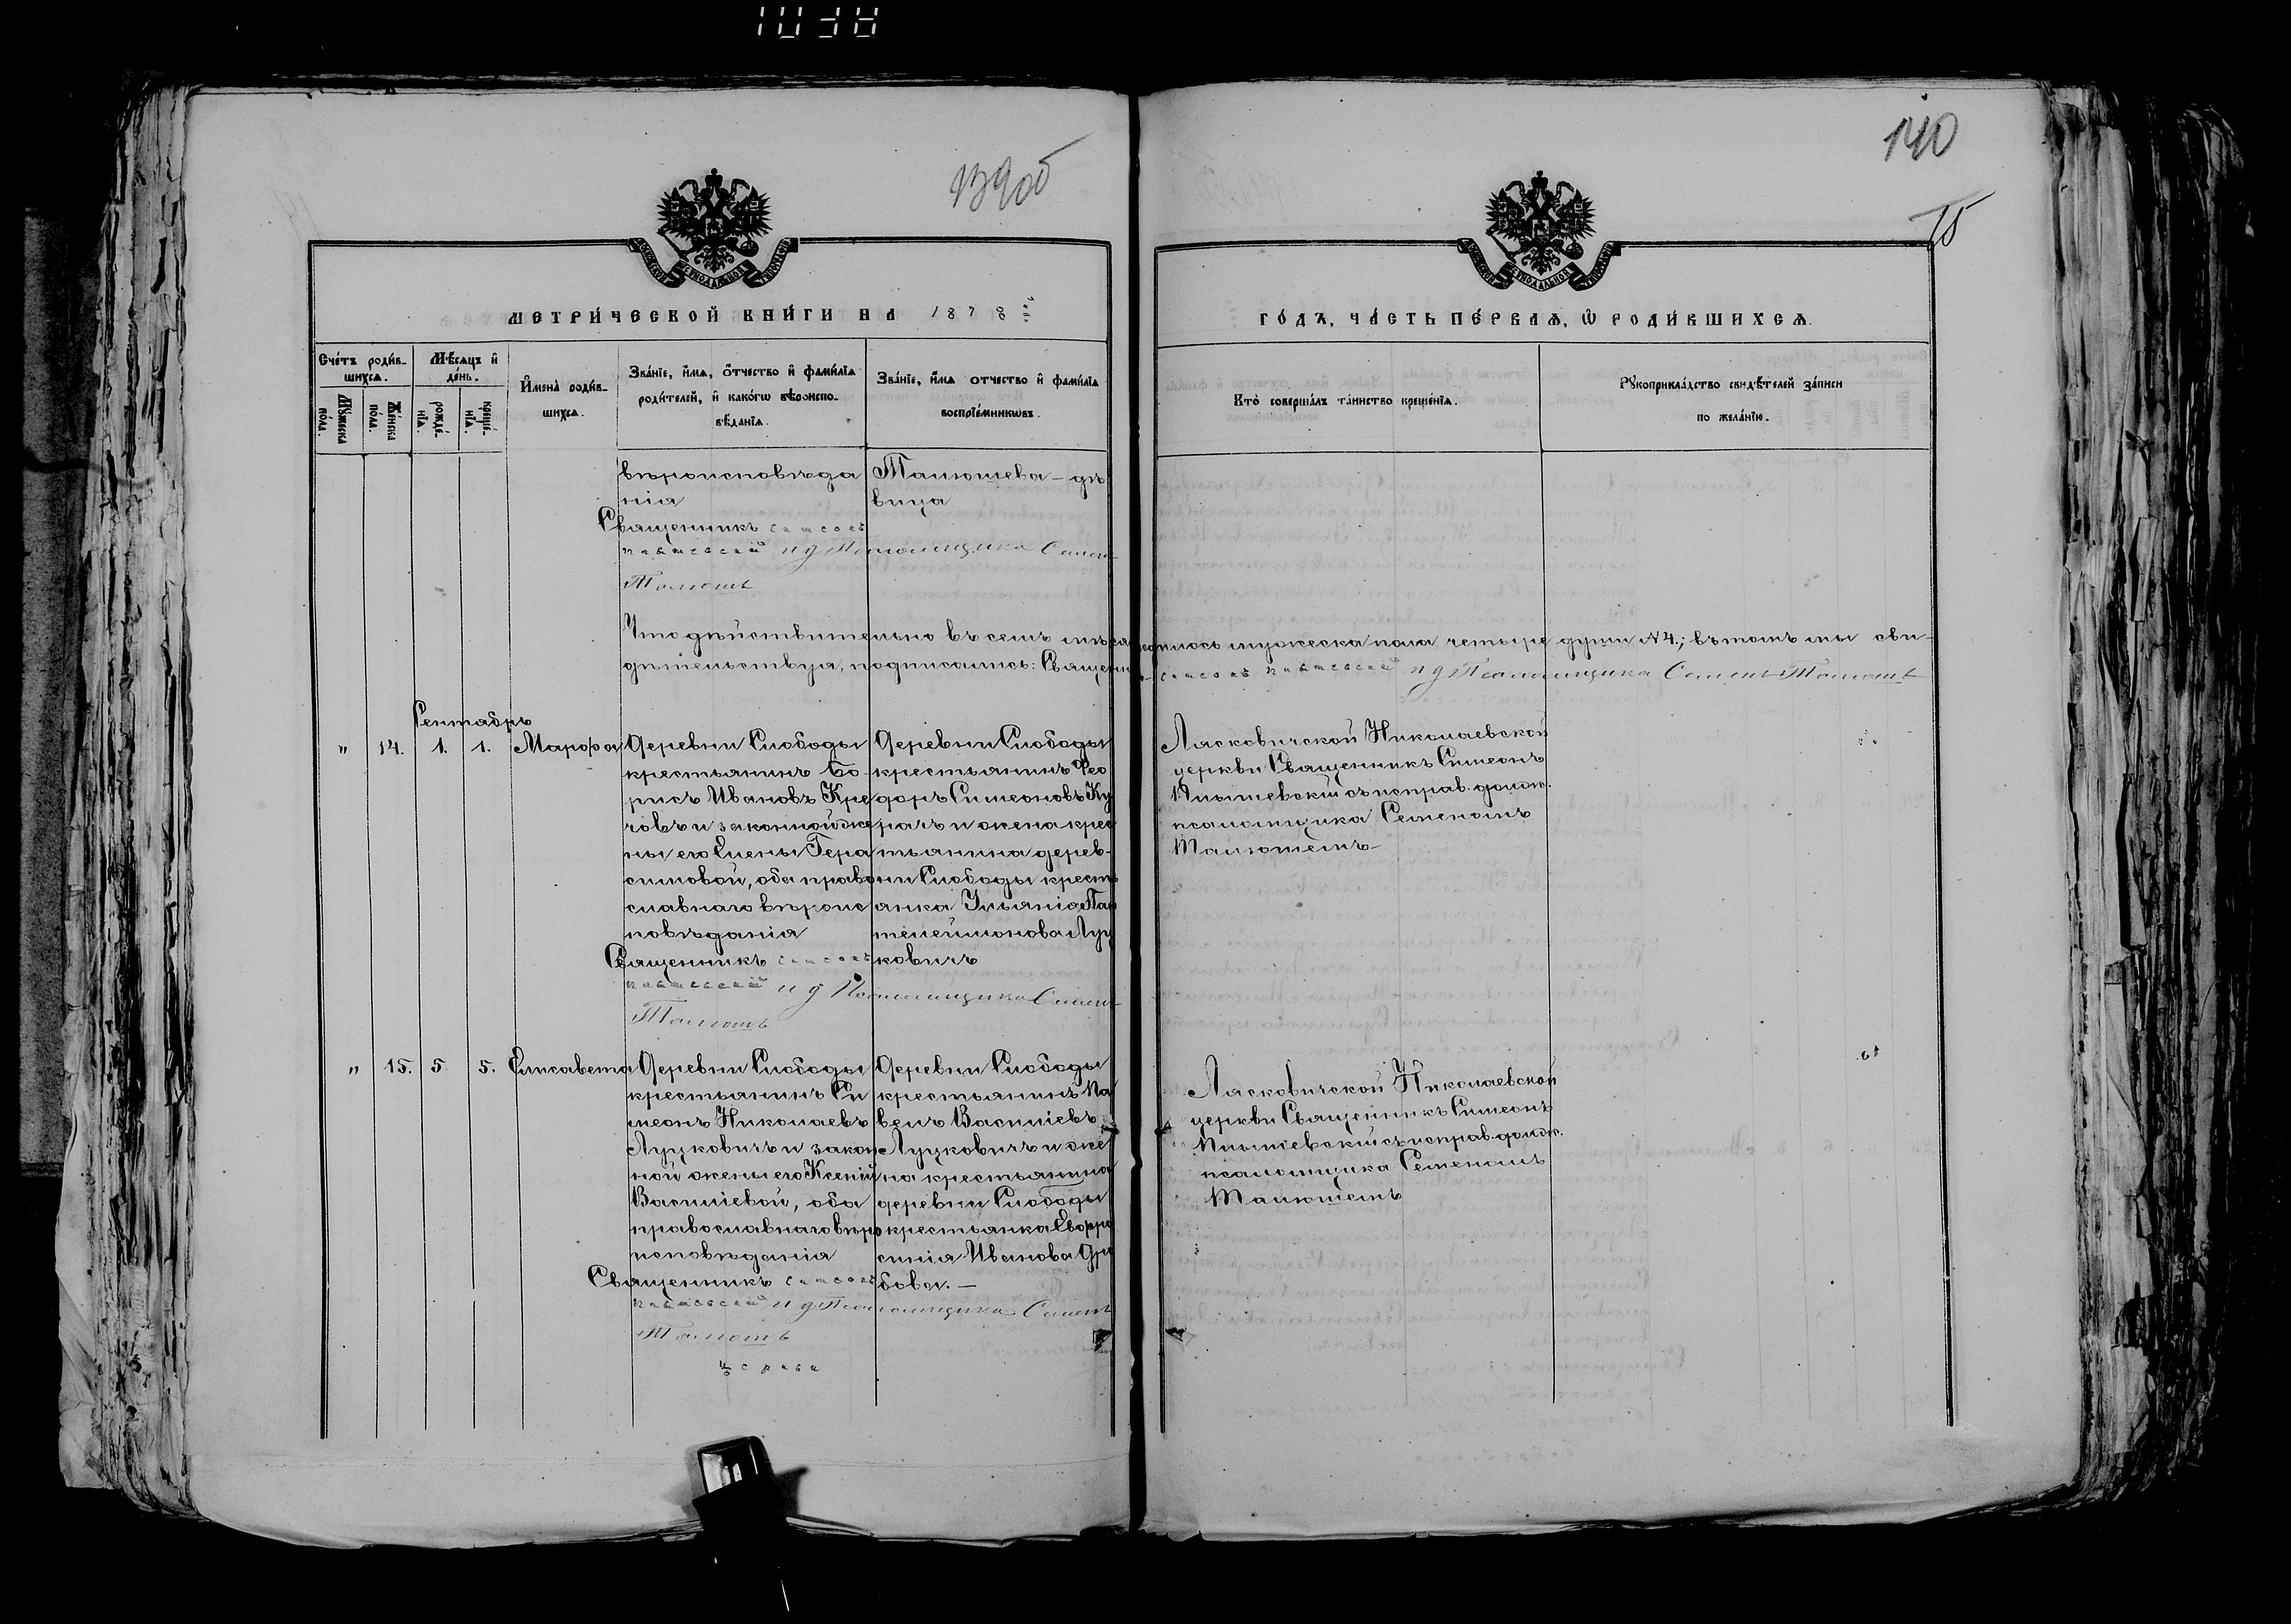 139об
140
75
МЕТРИ́ЧЕСКОЙ КНИ́ГИ НА 1878 й
ГО́ДЪ, ЧА́СТЬ ПЕ́РВАѦ, Ѽ РОДИ́ВШИХСѦ.
Сче́тъ роди́в-
шихсѧ.
Мꙋ́жеска по́ла.
Же́нска по́ла.
Мѣ́сѧцъ и҆ де́нь.
рожде́-нїѧ.
креще́-нїѧ.
И҆мена̀ роди́в-
шихсѧ.
Зва́нїе, и҆́мѧ, ѻ҆́тчество и҆ фами́лїѧ
роди́телей, и҆ како́гѡ вѣроиспо-
вѣ́данїѧ.
Зва́нїе, и҆́мѧ ѻ҆́тчество и҆ фами́лїѧ
воспрїе́мникѡвъ.
Кто̀ соверша́лъ та́инство креще́нїѧ.
Рꙋкоприкла́дство свидѣ́телей за́писи
по жела́нїю.
вѣроисповѣда
нія
Священникъ Симеонъ
и д Псаломщика Семенъ
Талюшъ
Талюшева - дѣ
вица
Что дѣйствительно въ семъ родилось мужеска пола четыре души №4.; въ томъ мы сви-
дѣтельствуя, подписались: Священни Симеонъ и д Псаломщика Семенъ Талюшъ
Сентябрь
" 14. 1. 1. Марѳа
Деревни Слободы
крестьянинъ Бо-
рисъ Ивановъ Кре
човъ и законной же
ны его Елены Гера
симовой, оба право
славнаго вѣроис
повѣданія
Священникъ Симеонъ
и д Псаломщика Семенъ
Талюшъ
Деревни Слободы
крестьянинъ Ѳео
доръ Симеоновъ Ку
рачъ и жена крес
тьянина дерев-
ни Слободы кресть
янка Ульянія Пан
телеймонова Луц
ковичъ
Лясковичской Николаевской
церкви Священникъ Симеонъ
съ исправ. долж.
псаломщика Семеномъ
Талюшемъ
" 15. 5 5. Елисавета
Деревни Слободы
крестьянинъ Си
меонъ Николаевъ
Луцковичъ и закон
ной жены его Ксеніи
Василіевой, оба
православнаго вѣро
исповѣданія
Священникъ Симеонъ
и д Псаломщика Семенъ
Талюшъ
церкви
Деревни Слободы
крестьянинъ Па
велъ Василіевъ
Луцковичъ и же
на крестьянина
деревни Слободы
крестьянка Евфро
синія Иванова Дро
бова. -
Лясковичской Николаевской
церкви Священникъ Симеонъ
съ исправ. долж.
псаломщика Семеномъ
Талюшемъ